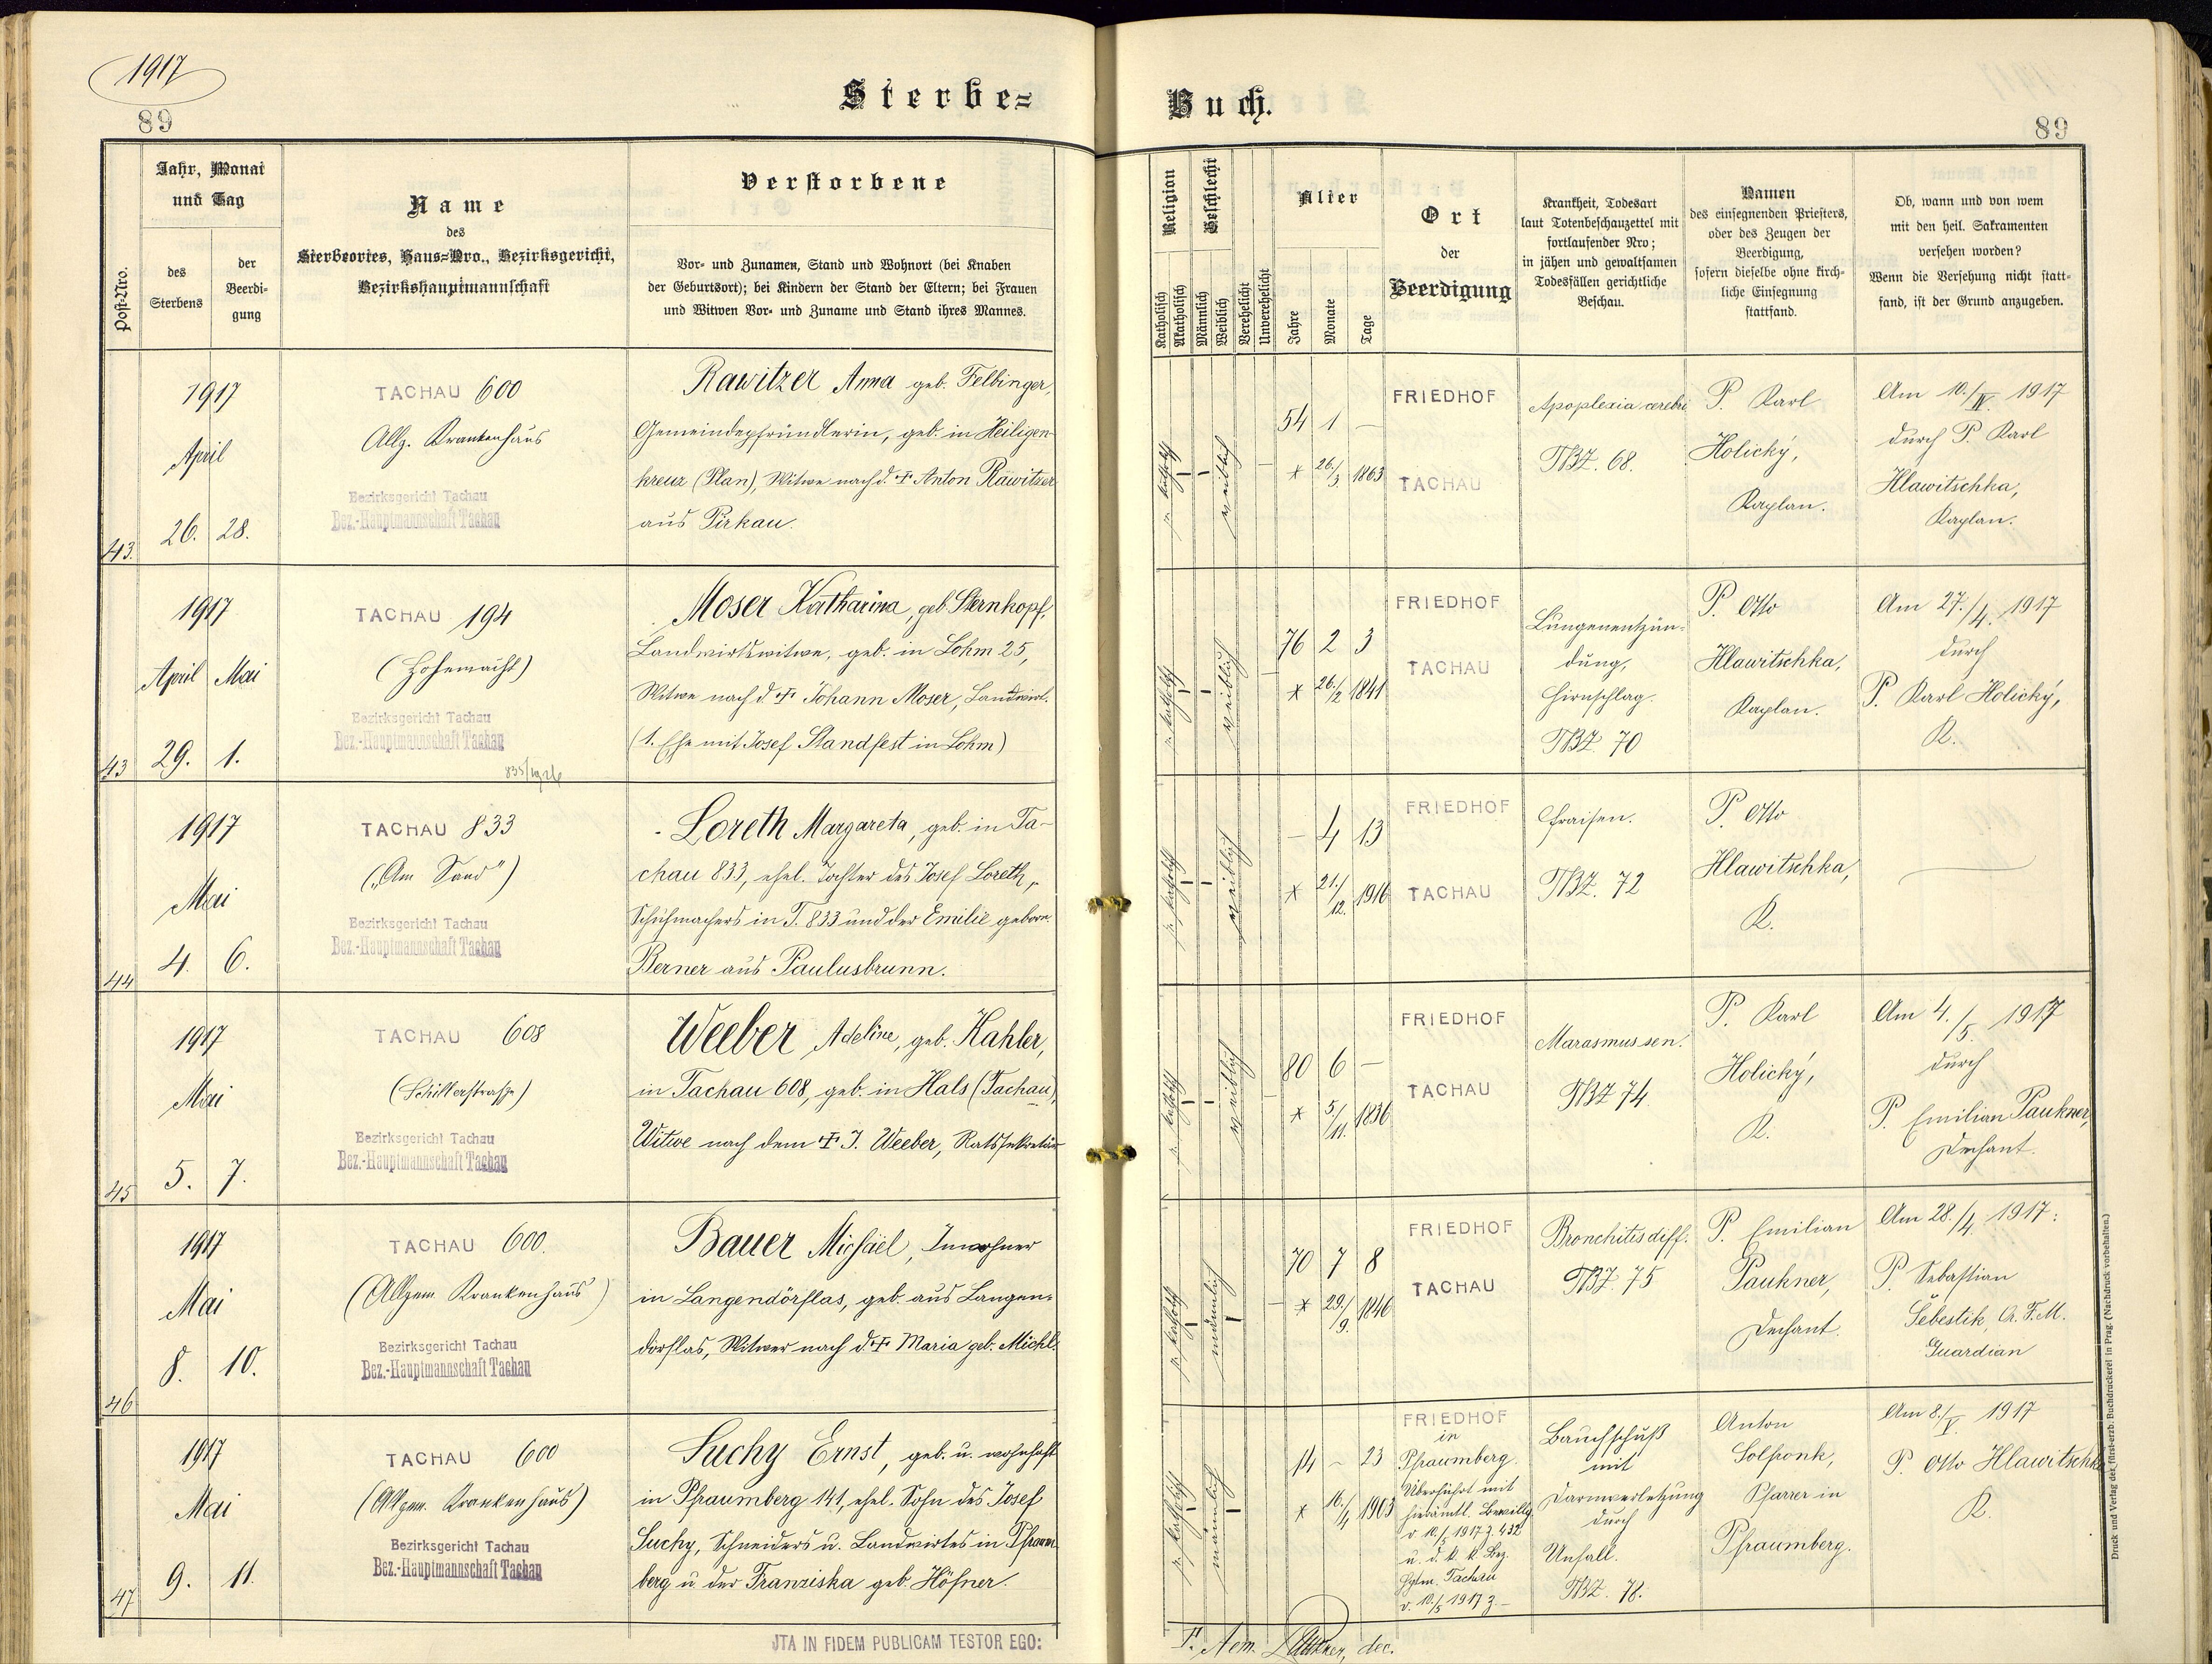 1917
89
Sterbe=
Buch.
89
Post-Nro.
Jahr, Monat
und Tag
des
Sterbens
der
Beerdi-
gung
Name
des
Sterbeortes, Haus=Nro., Bezirksgericht,
Bezirkshauptmannschaft
Verstorbene
Vor- und Zunamen, Stand und Wohnort (bei Knaben
der Geburtsort); bei Kindern der Stand der Eltern; bei Frauen
und Witwen Vor- und Zuname und Stand ihres Mannes.
Religion
Katholisch
Akatholisch
Geschlecht
Männlich
Weiblich
Verehelicht
Unverehelicht
Alter
Jahre
Monate
Tage
Ort
der
Beerdigung
Krankheit, Todesart
laut Totenbeschauzettel mit
fortlaufender Nro;
in jähen und gewaltsamen
Todesfällen gerichtliche
Beschau.
Namen
des einsegnenden Priesters,
oder des Zeugen der
Beerdigung,
sofern dieselbe ohne kirch-
liche Einsegnung
stattfand.
Ob, wann und von wem
mit den heil. Sakramenten
versehen worden?
Wenn die Versehung nicht statt-
fand, ist der Grund anzugeben.
43.
1917
April
26. 28.
TACHAU 600
Allg. Krankenhaus
Bezirksgericht Tachau
Bez.-Hauptmannschaft Tachau
Rawitzer Anna geb. Felbinger,
Gemeindepfründlerin, geb. in Heiligen-
kreuz (Plan), Witwe nach d. † Anton Rawitzer
aus Pirkau.
katholisch
weiblich
54 1 –
* 26./3. 1863
FRIEDHOF
TACHAU
Apoplexia cerebri
TBZ. 68.
P. Karl
Holický,
Kaplan.
Am 10./IV. 1917
durch P. Karl
Hlawitschka,
Kaplan.
43
1917
April Mai
29. 1.
TACHAU 194
(Hohemacht)
Bezirksgericht Tachau
Bez.-Hauptmannschaft Tachau
835/1926
Moser Katharina, geb. Sternkopf,
Landwirtswitwe, geb. in Lohm 25,
Witwe nach d. † Johann Moser, Landwirt.
(1. Ehe mit Josef Standfest in Lohm)
katholisch
weiblich
76 2 3
* 26./2 1841
FRIEDHOF
TACHAU
Lungenentzün-
dung,
Hirnschlag.
TBZ 70
P. Otto
Hlawitschka,
Kaplan.
Am 27./4. 1917
durch
P. Karl Holický,
K.
44
1917
Mai
4. 6.
TACHAU 833
("Am Sand")
Bezirksgericht Tachau
Bez.-Hauptmannschaft Tachau
Loreth Margareta, geb. in Ta-
chau 833, ehel. Tochter des Josef Loreth,
Schuhmachers in T. 833 und der Emilie geborn.
Berner aus Paulusbrunn.
katholisch
weiblich
– 4 13
* 21./12. 1916
FRIEDHOF
TACHAU
Fraisen.
TBZ. 72
P. Otto
Hlawitschka,
K.
45
1917
Mai
5. 7.
TACHAU 608
(Schillerstraße)
Bezirksgericht Tachau
Bez.-Hauptmannschaft Tachau
Weeber Adeline, geb. Kahler,
in Tachau 608, geb. in Hals (Tachau),
Witwe nach dem † J. Weeber, Ratssekretär
katholisch
weiblich
80 6 –
* 5./11. 1836
FRIEDHOF
TACHAU
Marasmus sen.
TBZ 74.
P. Karl
Holický,
K.
Am 4./5. 1917
durch
P. Emilian Paukner,
Dechant.
46
1917
Mai
8. 10.
TACHAU 600.
(Allgem. Krankenhaus)
Bezirksgericht Tachau
Bez.-Hauptmannschaft Tachau
Bauer Michael, Inwohner
in Langendörflas, geb. aus Langen-
dorflas, Witwer nach d. † Maria geb. Michl.
katholisch
männlich
70 7 8
* 29./9. 1846
FRIEDHOF
TACHAU
Bronchitis diff.
TBZ. 75
P. Emilian
Paukner,
Dechant.
Am 28./4. 1917:
P. Sebastian
Šebestik, O. F. M.
Guardian
47
1917
Mai
9. 11.
TACHAU 600
(Allgem. Krankenhaus)
Bezirksgericht Tachau
Bez.-Hauptmannschaft Tachau
Suchy Ernst, geb. u. wohnhaft
in Pfraumberg 141, ehel. Sohn des Josef
Suchy, Schneiders u. Landwirtes in Pfraum-
berg u. der Franziska geb. Höfner.
katholisch
männlich
14 – 23
* 16./4 1903
FRIEDHOF
in
Pfraumberg.
Überführt mit
hierämtl. Bewillg.
v. 10./5 1917 Z. 432
u. d. k. k. Bez.
Hptm. Tachau
v. 10./5 1917 Z. –
Bauchschuß
mit
Darmverletzung
durch
Unfall.
TBZ. 78.
Anton
Pfarrer in
Pfraumberg.
Am 8./V. 1917
P. Otto Hlawitschka
K.
JTA IN FIDEM PUBLICAM TESTOR EGO:
Paukner, dec.
Druck und Verlag der fürst-erzb. Buchdruckerei in Prag. (Nachdruck vorbehalten.)